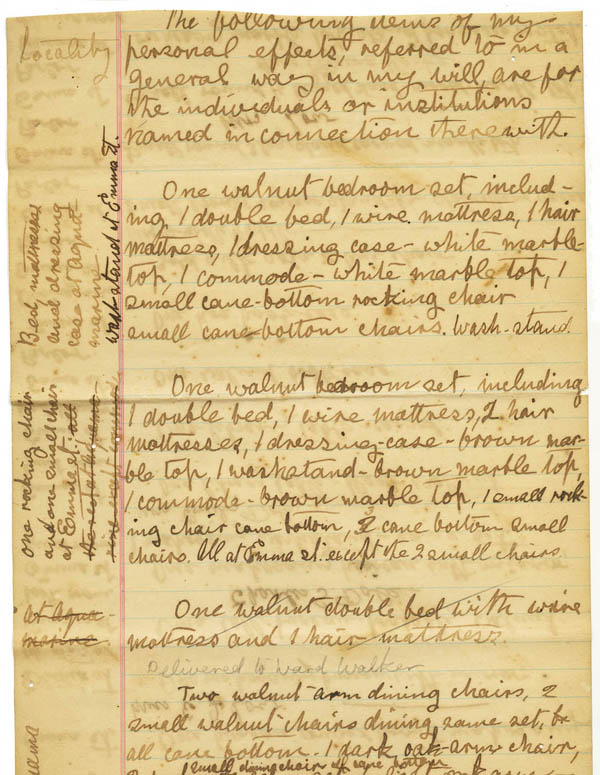 Locality
The following items of my
personal effects, referred to in a
general way in my will, are for
the individuals or institutions
named in connection therewith.
Bed, mattresses
and dressing
case at Aqua-
marine
wash stand at Emma st.
One walnut bedroom set, includ-
ing, 1 double bed, 1 wire mattress, 1 hair
mattress, 1 dressing case - white marble
top, 1 commode - white marble top, 1
small cane-bottom rocking chair
small cane-bottom chairs. Wash-stand
one rocking chair
and one small chair
at Emma st.
One walnut bedroom set, including
1 double bed, 1 wire mattress, 2 hair
mattresses, 1 dressing-case - brown mar-
ble top, 1 washstand - brown marble top,
1 commode - brown marble top, 1 small rock-
ing chair cane bottom, 2 cane bottom small
chairs. All at Emma st. except the 2 small chairs
at Aqua-
marine.
One walnut double bed with wire
mattress and 1 hair mattress.
Delivered to Ward Walker
Two walnut arm dining chairs, 2
small walnut chairs dining same set,
all cane bottom. 1 dark oak arm chair,
1 small dining chair of cane bottom